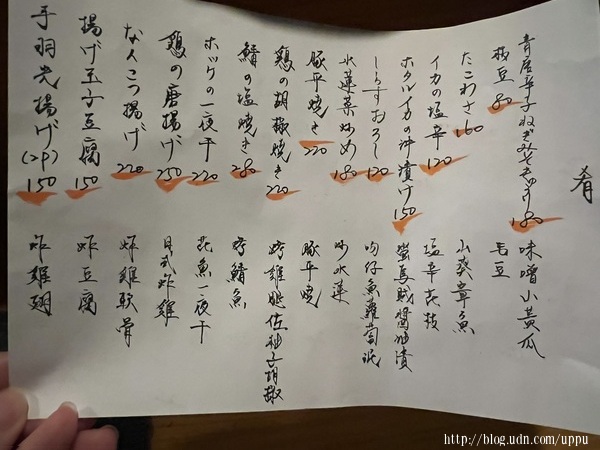 肴
青唐辛子ねぎみそきゅうり 180
味噌小黃瓜
枝豆 80
毛豆
たこわさ 160
小葵章魚
イカの塩辛 120
塩辛花枝
ホタルイカの沖漬け 150
螢烏賊醬油漬
しらすおろし 120
吻仔魚蘿蔔泥
水蓮菜炒め 180
炒水蓮
豚平焼き 220
豚平燒
鶏の胡椒焼き 220
烤雞腿佐柚子胡椒
鯖の塩焼き 280
烤鯖魚
ホッケの一夜干 220
花魚一夜干
鶏の唐揚げ 250
日式炸雞
なんこつ揚げ 220
炸雞軟骨
揚げ玉子豆腐 150
炸豆腐
手羽先揚げ(2P) 150
炸雞翅
http://blog.udn.com/uppu